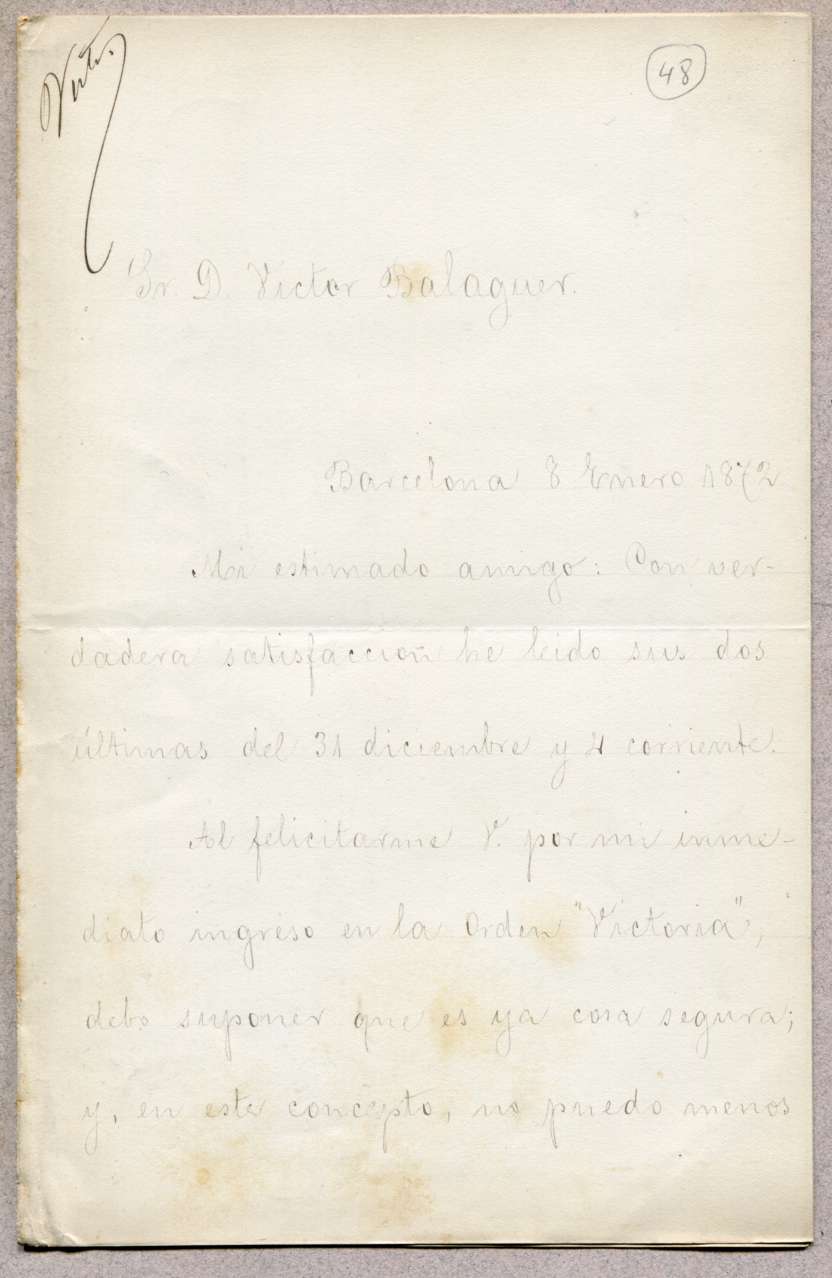 48
Sr. D. Victor Balaguer.
Barcelona 8 Enero 1872
Mi estimado amigo: Con ver-
dadera satisfaccion he leido sus dos
últimas del 31 diciembre y 4 corriente.
Al felicitarme V. por mi inme-
diato ingreso en la Orden "Victoria",
debo suponer que es ya cosa segura;
y, en este concepto, no puedo menos